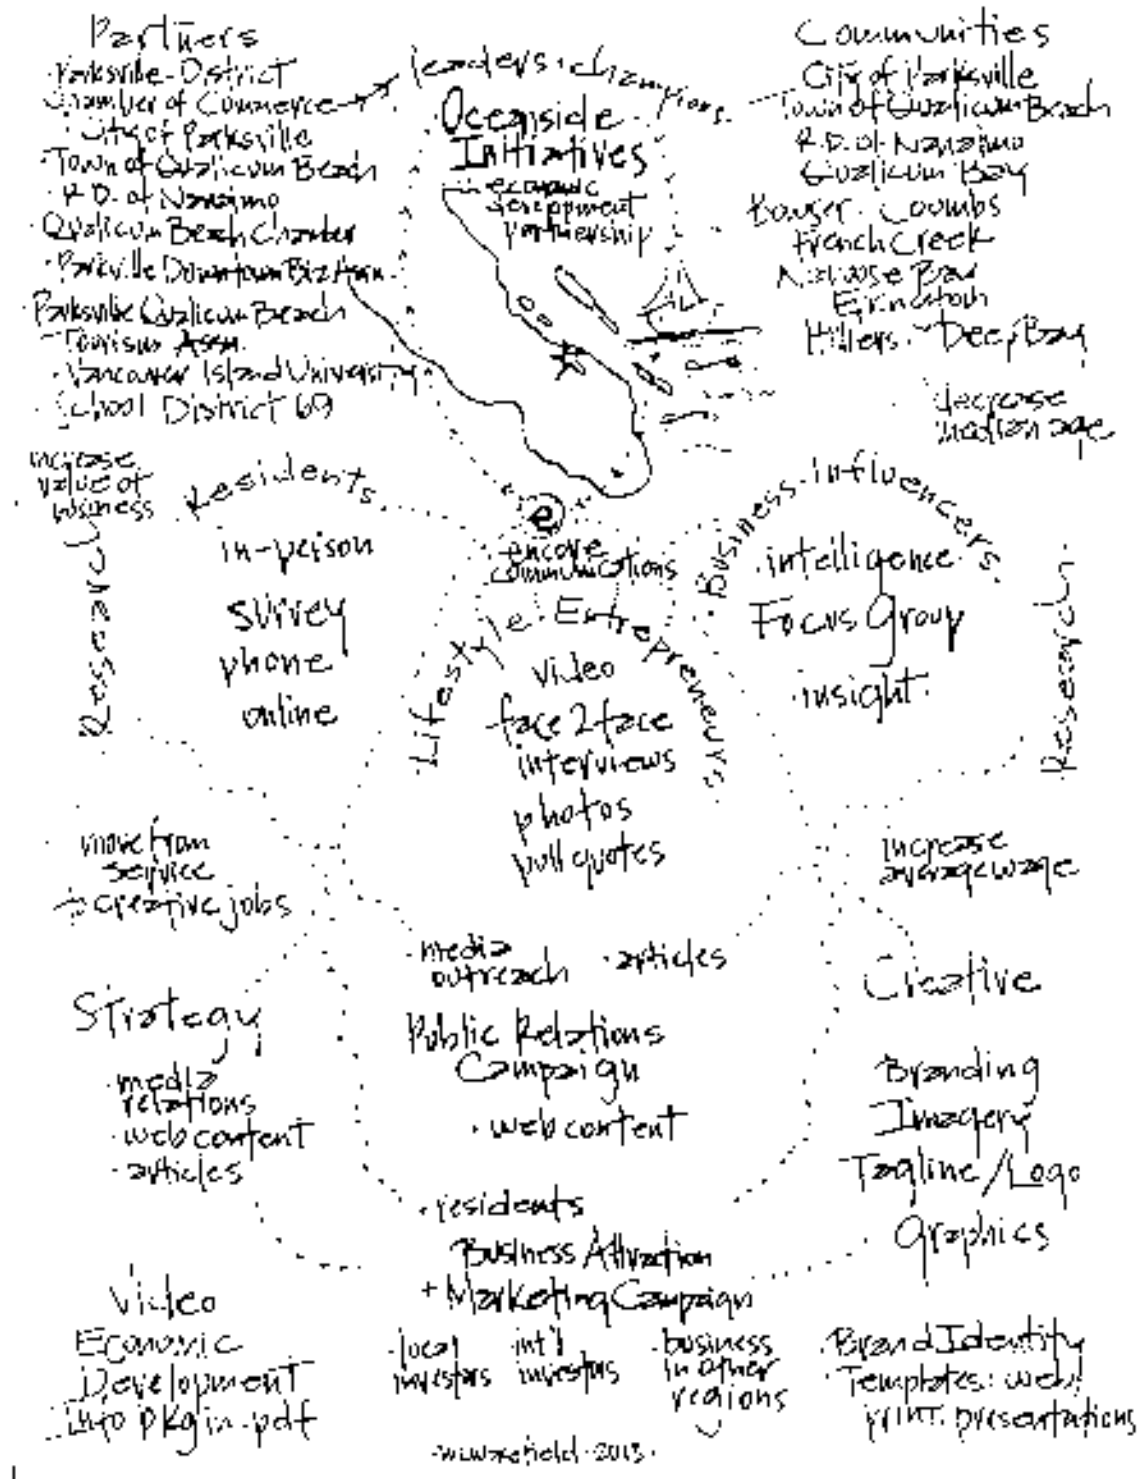 Partners
·Parksville-District
Chamber of Commerce
·City of Parksville
·Town of Qualicum Beach
·R.D. of Nanaimo
·Qualicum Beach Chamber
·Parksville Downtown Biz Assn.
·Parksville Qualicum Beach
Tourism Assn.
·Vancouver Island University
·School District 69
leaders·champions
Oceanside
Initiatives
economic
development
partnership
Communities
City of Parksville
Town of Qualicum Beach
R.D. of Nanaimo
Qualicum Bay
Bowser · Coombs
French Creek
Nanoose Bay
Errington
Hilliers · Deep Bay
decrease
median age
increase
value of
business
Research
Residents
in-person
survey
phone
online
e
encore
communications
Lifestyle·Entrepreneurs
video
face2face
interviews
photos
pull quotes
·Business·Influencers
·intelligence·
Focus Group
·insight·
Research
move from
service
to creative jobs
increase
average wage
·media
outreach
·articles
Public Relations
Campaign
·web content
Strategy
·media
relations
·web content
·articles
Creative
Branding
Imagery
Tagline/Logo
Graphics
·residents
Business Attraction
+ Marketing Campaign
·local
investors
int'l
investors
·business
in other
regions
Video
Economic
Development
info pkg in .pdf
·Brand Identity
Templates: web/
print. presentations
2013·